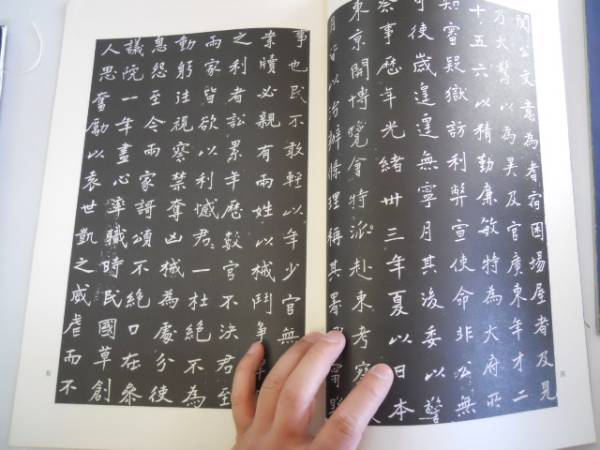 閱公文意為耆宿困場屋者及見
方大驚以為吴及官廣東年才二
十五六以精勤廉敏特為大府所
知審疑獄訪利弊宣使命非公無
可使歲遑遑無寧月其後委以警
察事歷年光緒卅三年夏以日本
東京開博覽會特派赴東考察
月皆以治辦條理稱其署
事也民不敢輕以年少官無
案牘必親有兩姓以械鬥
之利者訟累年歷數官不決君至
兩家皆欲以利憾君一杜絕不為
動躬往視察禁奪凶械為處分使
息怨至今兩家謌頌不絕口在叅
議院一年盡心職時民國草創
人思奮勵以袁世凱之威虐而不